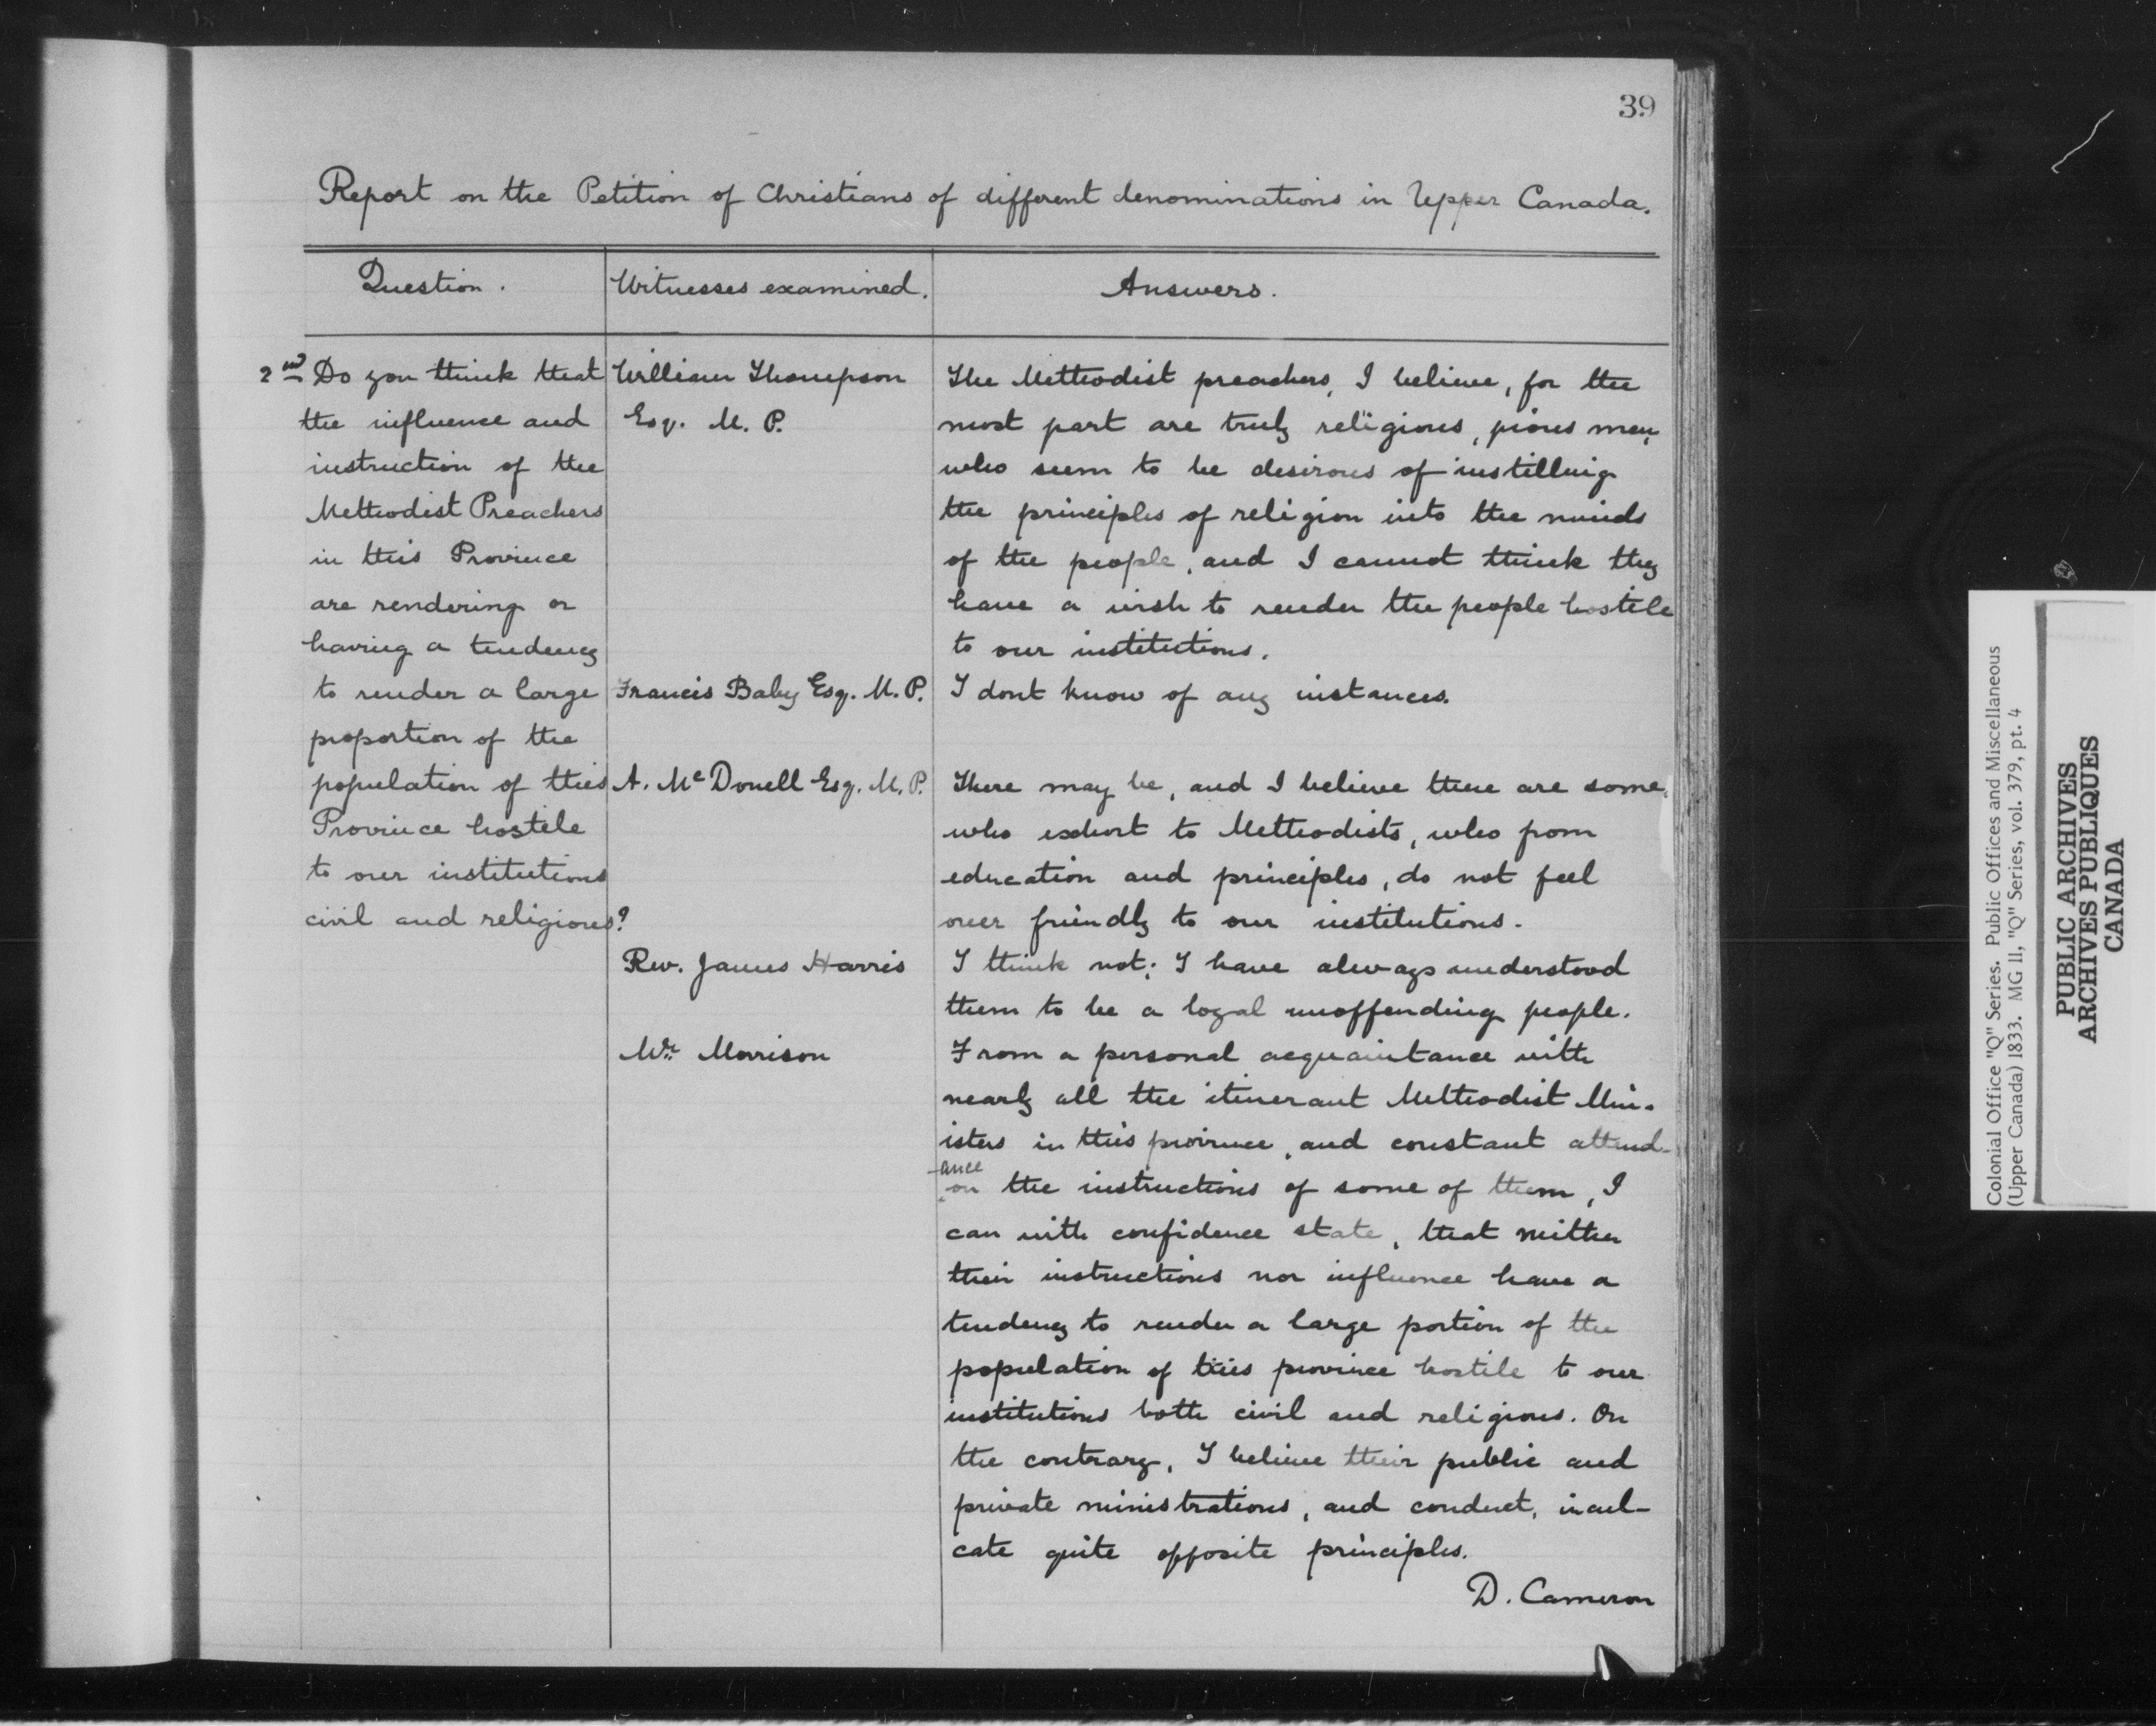 39
Report on the Petition of Christians of different denominations in Upper Canada.
Question.
Witnesses examined.
Answers.
2nd Do you think that
the influence and
instruction of the
Methodist Preachers
in this Province
are rendering or
having a tendency
to render a large
proportion of the
population of this
Province hostile
to our institutions
civil and religious?
William Thompson
Esq. M. P.
The Methodist preachers, I believe, for the
most part are truly religious, pious men,
who seem to be desirous of instilling
the principles of religion into the minds
of the people, and I cannot think they
have a wish to render the people hostile
to our institutions.
Francis Baby Esq. M. P.
I dont know of any instances.
A. McDonell Esq. M. P.
There may be, and I believe there are some,
who exhort to Methodists, who from
education and principles, do not feel
over friendly to our institutions.
Rev. James Harris
I think not; I have always understood
them to be a loyal unoffending people.
Mr. Morrison
From a personal acquaintance with
nearly all the itinerant Methodist Min-
isters in this province, and constant attend-
-ance
on the instructions of some of them, I
can with confidence state, that neither
their instructions nor influence have a
tendency to render a large portion of the
population of this province hostile to our
institutions both civil and religious. On
the contrary, I believe their public and
private ministrations, and conduct, incul-
cate quite opposite principles.
D. Cameron
Colonial Office "Q" Series. Public Offices and Miscellaneous
(Upper Canada) 1833. MG 11, "Q" Series, vol. 379, pt. 4
PUBLIC ARCHIVES
ARCHIVES PUBLIQUES
CANADA